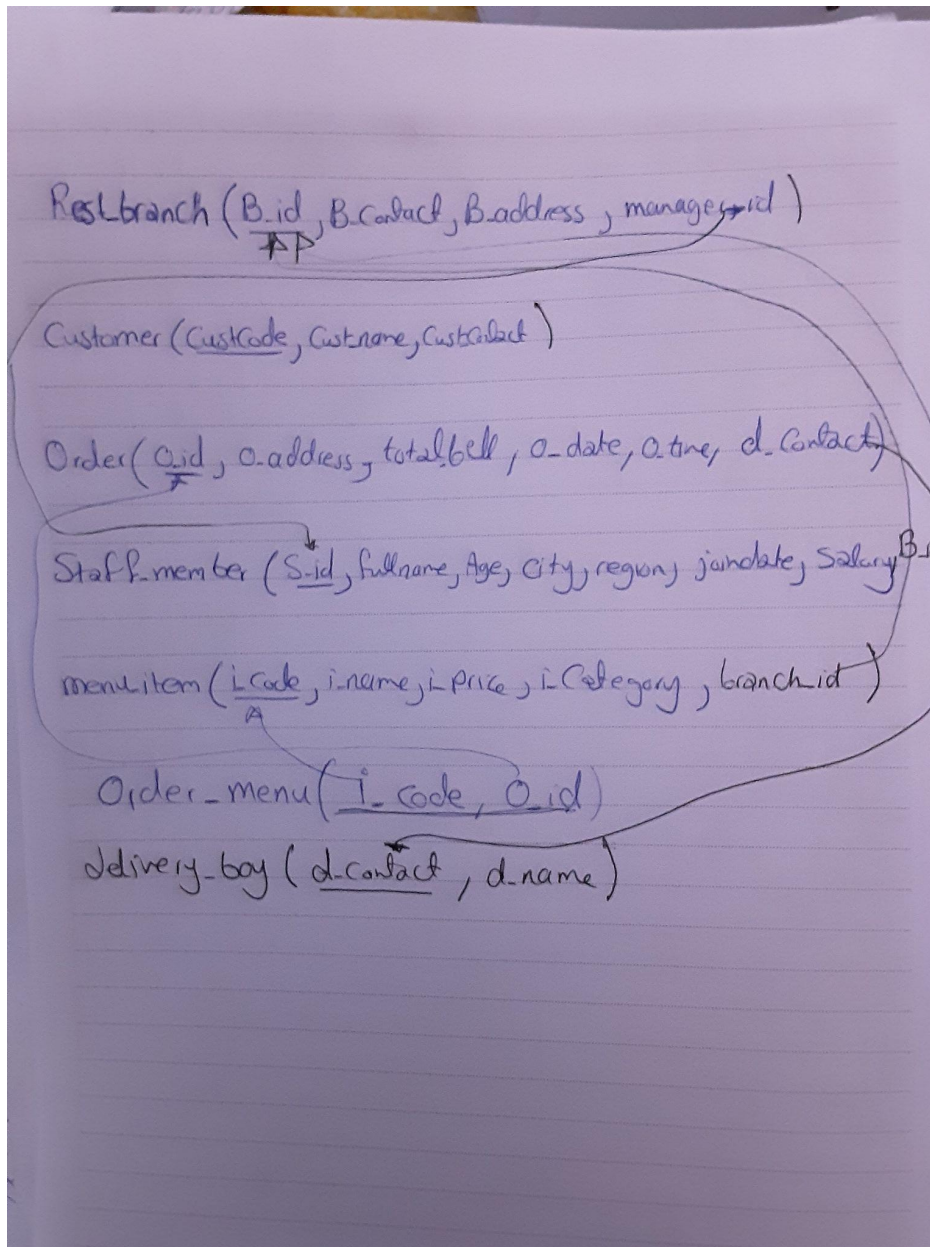 Rest_branch (B_id, B_Contact, B_address, manager_id)
Customer (CustCode, Cust_name, CustContact)
Order (O_id, o_address, total_bill, o_date, o_time, d_Contact)
Staff_member (S_id, fullname, Age, city, region, joindate, Salary B_
menu_item (i_code, i_name, i_price, i_Category, branch_id)
Order_menu (i_code, O_id)
delivery_boy (d_contact, d_name)